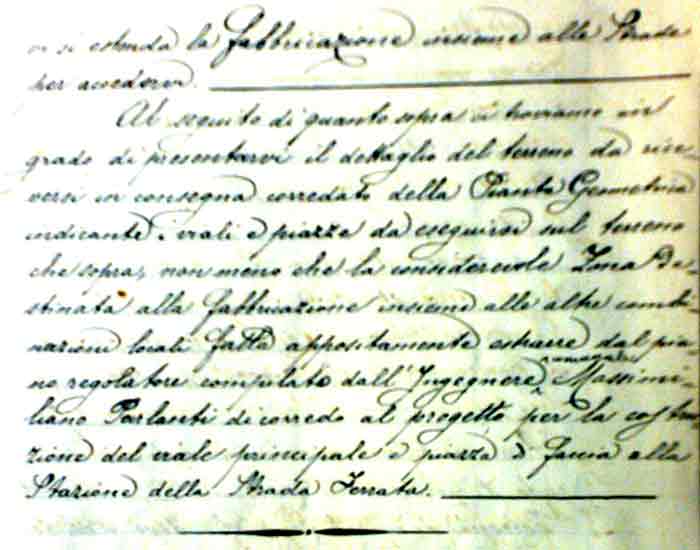 vi si estenda la fabbricazione insieme alle Strade
per accedervi.
Al seguito di quanto sopra ci troviamo in
grado di presentarvi il dettaglio del terreno da rice
versi in consegna corredato della Pianta Geometrica
indicante i viali e piazze da eseguirsi sul terreno
che sopra, non meno che la considerevole Zona de
stinata alla fabbricazione insieme alle altre combi
nazioni locali fatta appositamente estrarre dal pia
no regolatore compilato dall'Ingegnere Massimi-
liano Parlanti di corredo al progetto per la costru
zione del viale principale e piazza di faccia alla
Stazione della Strada Ferrata.